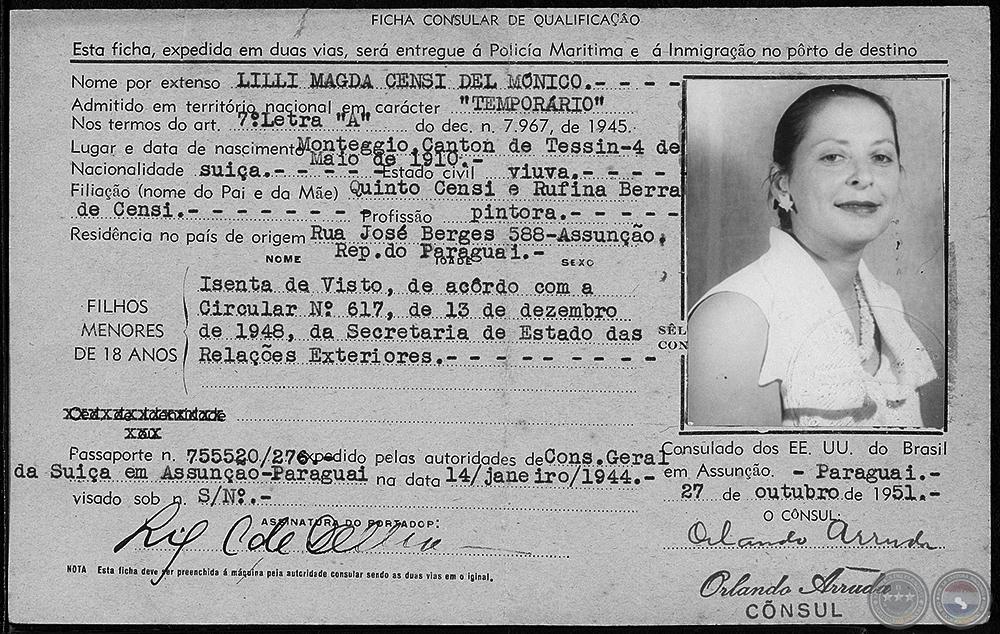 FICHA CONSULAR DE QUALIFICAÇÃO
Esta ficha, expedida em duas vias, será entregue á Policía Maritima e á Inmigração no pôrto de destino
Nome por extenso LILLI MAGDA CENSI DEL MÓNICO.- - - -
Admitido em território nacional em carácter "TEMPORÁRIO"
Nos termos do art. 7º Letra "A" do dec. n. 7.967, de 1945.
Lugar e data de nascimento Monteggio, Canton de Tessin-4 de
Maio de 1910.-
Nacionalidade suiça.- - - - - Estado civil viuva.- - - -
Filiação (nome do Pai e da Mãe) Quinto Censi e Rufina Berra
de Censi.- - - - - - - - Profissão pintora.- - - - -
Residência no país de origem Rua José Berges 588-Assunção,
Rep.do Paraguai.-
NOME IDADE SEXO
FILHOS MENORES DE 18 ANOS
Isenta de Visto, de acôrdo com a
Circular Nº 617, de 13 de dezembro
de 1948, da Secretaria de Estado das
Relações Exteriores.- - - - - - - - - -
SÊL
CON
Passaporte n. 755520/276.- expedido pelas autoridades de Cons.Geral
da Suiça em Assunção-Paraguai na data 14/janeiro/1944.-
visado sob n. S/Nº.-
Consulado dos EE. UU. do Brasil
em Assunção. - Paraguai.-
27 de outubro de 1951.-
O CÔNSUL:
ASSINATURA DO PORTADOR:
Orlando Arruda
NOTA Esta ficha deve ser preenchida á máquina pela autoridade consular sendo as duas vias em o iginal.
Orlando Arruda
CÕNSUL